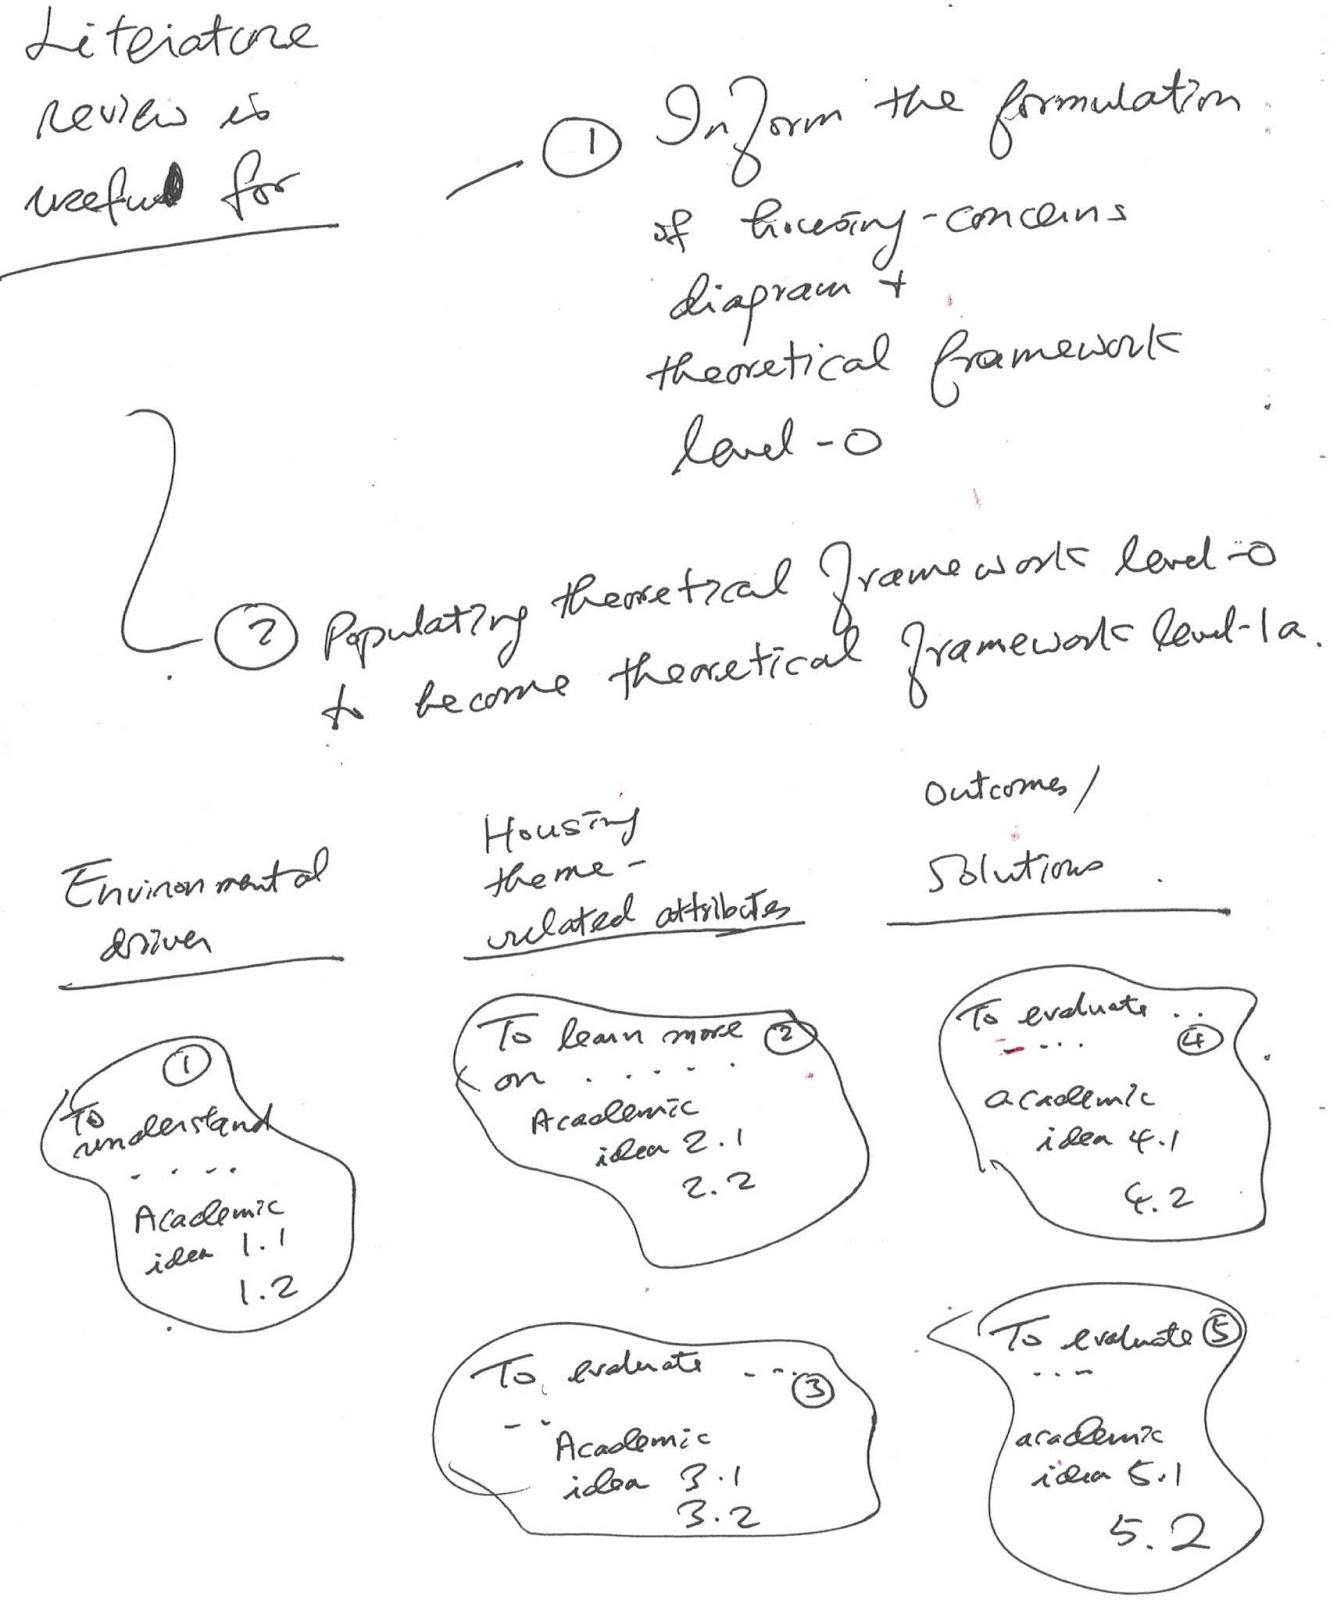 Literature
review is
useful for
① Inform the formulation
of housing-concerns
diagram +
theoretical framework
level-0
② Populating theoretical framework level-0
to become theoretical framework level-1a.
Environmental
driver
Housing
theme-
related attributes
Outcomes/
Solutions
①
To
understand
....
Academic
idea 1.1
1.2
To learn more ②
on . . . . . .
Academic
idea 2.1
2.2
To evaluate ---
③
--
Academic
idea 3.1
3.2
To evaluate ..
-... ④
academic
idea 4.1
4.2
To evaluate ⑤
...
academic
idea 5.1
5.2